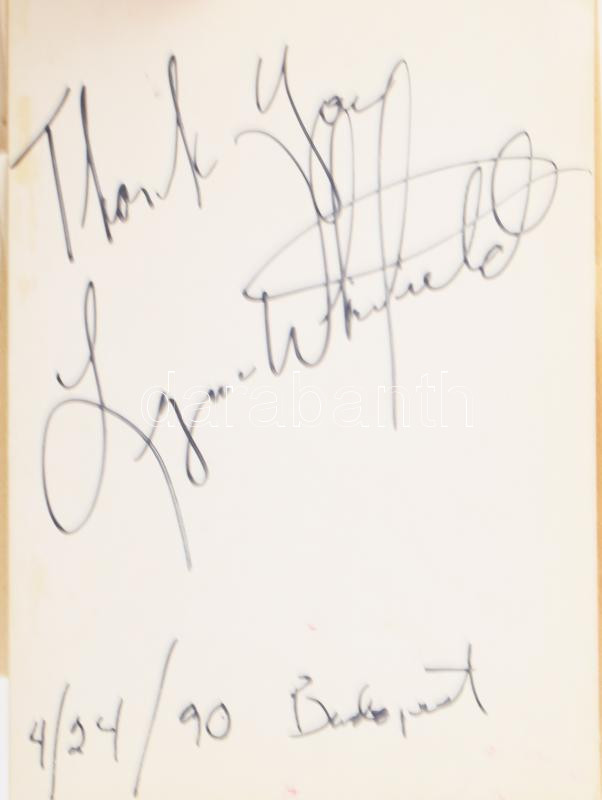 Thank You
Lynn Whitfield
darabanth
4/24/90 Budapest